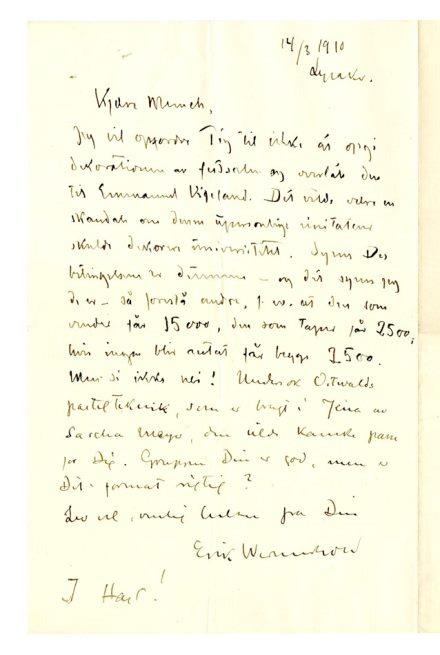 14/3 1910
Lysaker.
Kjære Munch,
Jeg vil opfordre Dig til ikke at opgi
dekorationen av festsalen og overlate den
til Emmanuel Vigeland. Det vilde være en
skandale om denne upersonlige imitator
skulde dekorere universitetet. Synes Du
betingelsene er dumme – og det synes jeg
de er – så foreslå andre, f. ex. at den som
vinder får 15000, den som taper får 2500,
hvis ingen blir antat får begge 7500.
Men si ikke nei! Undersøk Ostwalds
pastelteknik, som er brugt i Jena av
Sascha, den vilde kanske passe
for Dig. Gruppen Din er god, men er
Dit format rigtig?
Lev vel, venlig hilsen fra Din
Erik Werenskiold
I Hast!